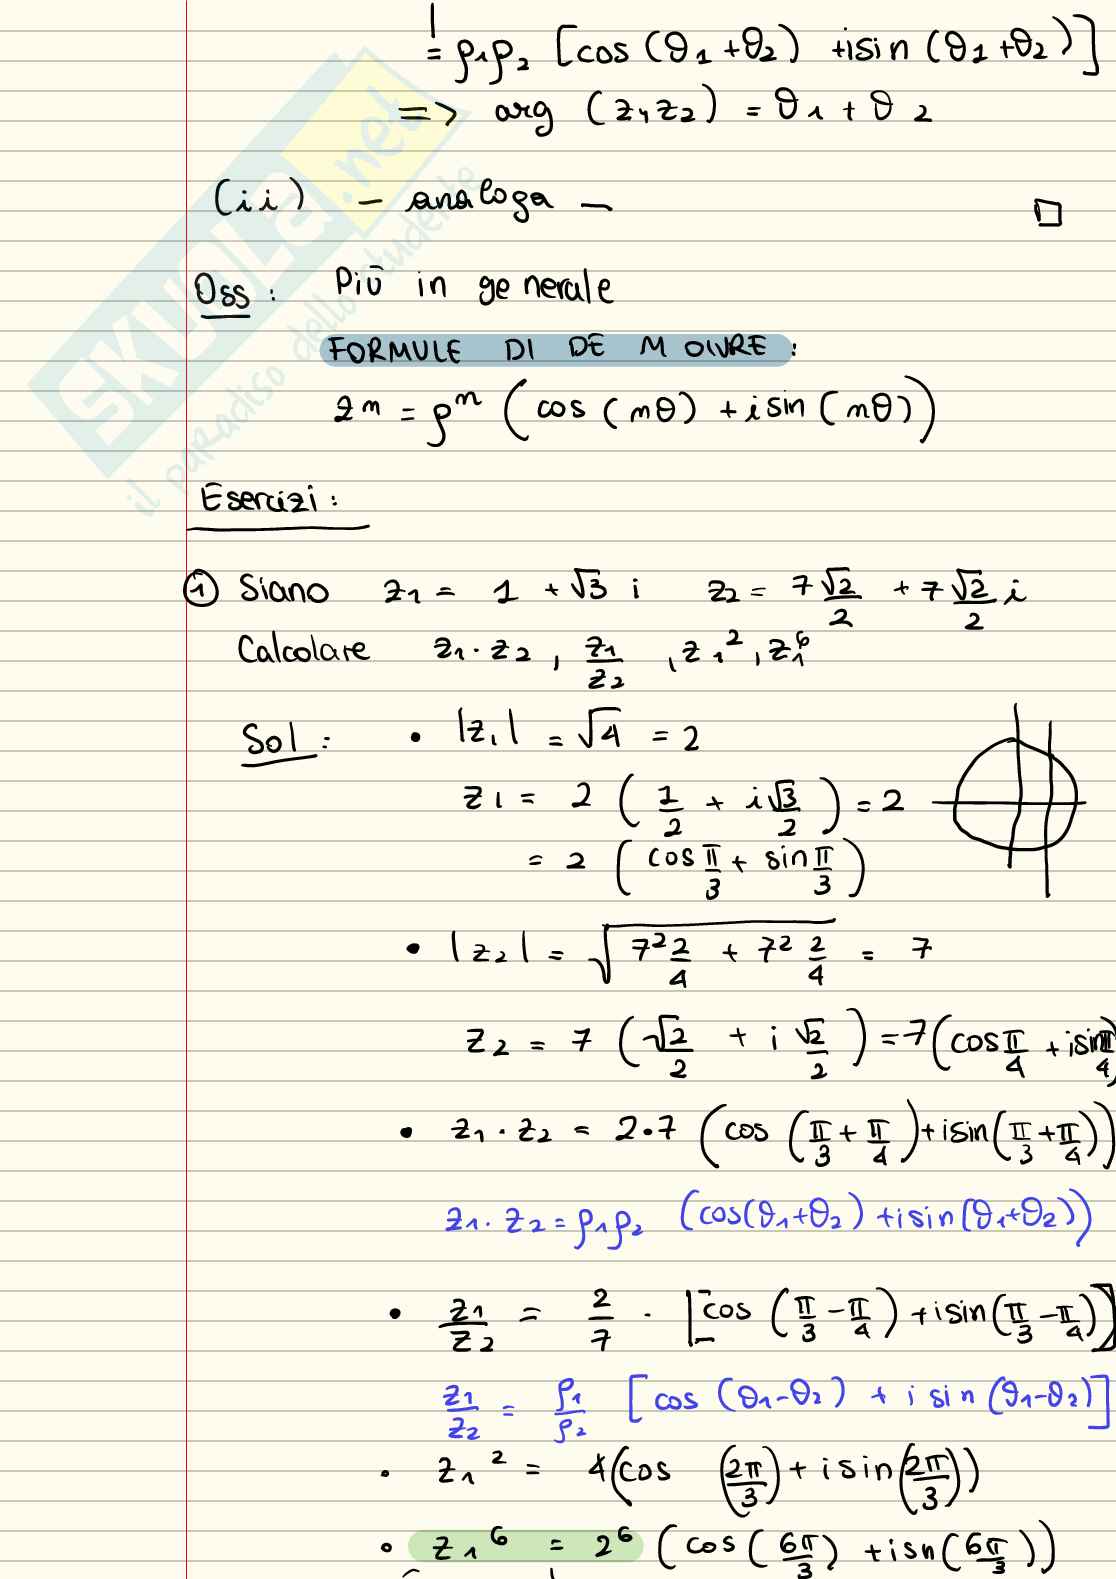 = ρ₁ρ₂ [cos (θ₁ + θ₂) + i sin (θ₁ + θ₂)]
=> arg (z₁ z₂) = θ₁ + θ₂
(ii) – analoga –
Oss: Più in generale
FORMULE DI DE MOIVRE:
zⁿ = ρⁿ (cos (nθ) + i sin (nθ))
Esercizi:
① Siano z₁ = 1 + √3 i z₂ = 7 √2/2 + 7 √2/2 i
Calcolare z₁ · z₂ , z₁/z₂ , z₁² , z₁⁶
Sol: • |z₁| = √4 = 2
z₁ = 2 (1/2 + i √3/2) = 2
= 2 (cos π/3 + sin π/3)
• |z₂| = √(7² 2/4 + 7² 2/4) = 7
z₂ = 7 (√2/2 + i √2/2) = 7 (cos π/4 + i sin π/4)
• z₁ · z₂ = 2·7 (cos (π/3 + π/4) + i sin (π/3 + π/4))
z₁ · z₂ = ρ₁ρ₂ (cos(θ₁+θ₂) + i sin(θ₁+θ₂))
• z₁/z₂ = 2/7 · [cos (π/3 − π/4) + i sin (π/3 − π/4)]
z₁/z₂ = ρ₁/ρ₂ [cos (θ₁−θ₂) + i sin (θ₁−θ₂)]
• z₁² = 4 (cos (2π/3) + i sin (2π/3))
• z₁⁶ = 2⁶ (cos (6π/3) + i sn (6π/3))
SKUOLA.net
il paradiso dello studente